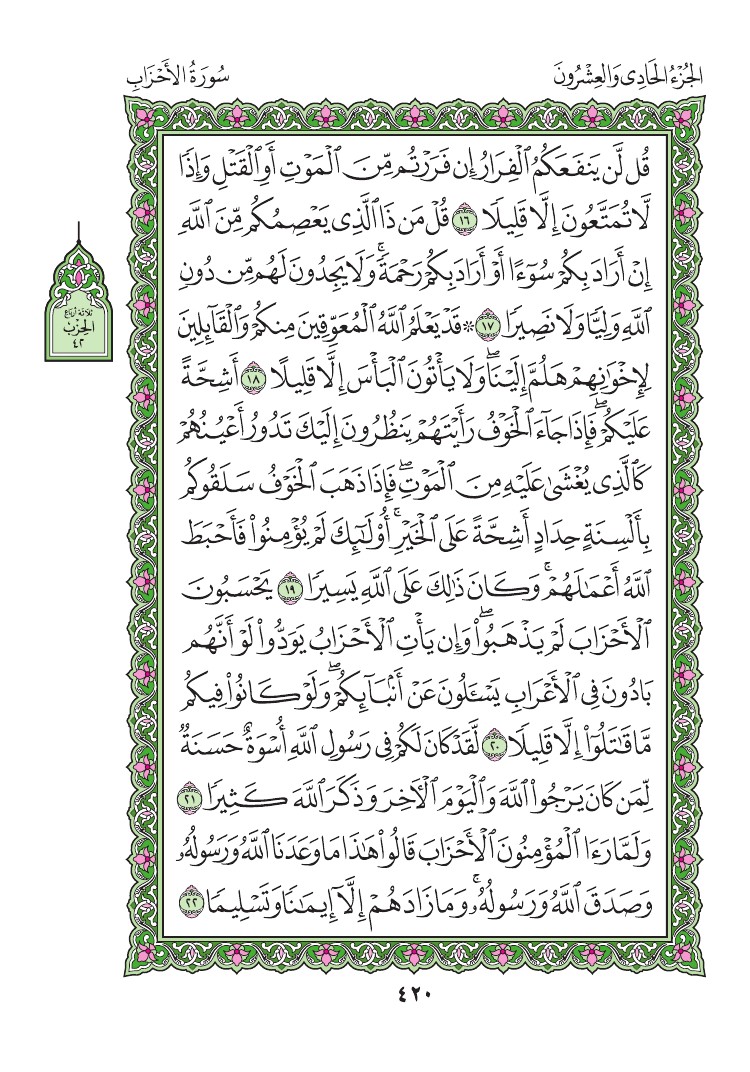 الجُزْءُ الحَادِي وَالعِشْرُونَ
سُورَةُ الأَحْزَابِ
قُل لَّن يَنفَعَكُمُ ٱلْفِرَارُ إِن فَرَرْتُم مِّنَ ٱلْمَوْتِ أَوِ ٱلْقَتْلِ وَإِذًا
لَّا تُمَتَّعُونَ إِلَّا قَلِيلًا ١٦ قُلْ مَن ذَا ٱلَّذِي يَعْصِمُكُم مِّنَ ٱللَّهِ
إِنْ أَرَادَ بِكُمْ سُوٓءًا أَوْ أَرَادَ بِكُمْ رَحْمَةًۚ وَلَا يَجِدُونَ لَهُم مِّن دُونِ
ٱللَّهِ وَلِيًّا وَلَا نَصِيرًا ١٧ ۞ قَدْ يَعْلَمُ ٱللَّهُ ٱلْمُعَوِّقِينَ مِنكُمْ وَٱلْقَآئِلِينَ
لِإِخْوَٰنِهِمْ هَلُمَّ إِلَيْنَاۖ وَلَا يَأْتُونَ ٱلْبَأْسَ إِلَّا قَلِيلًا ١٨ أَشِحَّةً
عَلَيْكُمْۖ فَإِذَا جَآءَ ٱلْخَوْفُ رَأَيْتَهُمْ يَنظُرُونَ إِلَيْكَ تَدُورُ أَعْيُنُهُمْ
كَٱلَّذِي يُغْشَىٰ عَلَيْهِ مِنَ ٱلْمَوْتِۖ فَإِذَا ذَهَبَ ٱلْخَوْفُ سَلَقُوكُم
بِأَلْسِنَةٍ حِدَادٍ أَشِحَّةً عَلَى ٱلْخَيْرِۚ أُوْلَٰٓئِكَ لَمْ يُؤْمِنُوا۟ فَأَحْبَطَ
ٱللَّهُ أَعْمَٰلَهُمْۚ وَكَانَ ذَٰلِكَ عَلَى ٱللَّهِ يَسِيرًا ١٩ يَحْسَبُونَ
ٱلْأَحْزَابَ لَمْ يَذْهَبُوا۟ۖ وَإِن يَأْتِ ٱلْأَحْزَابُ يَوَدُّوا۟ لَوْ أَنَّهُم
بَادُونَ فِي ٱلْأَعْرَابِ يَسْـَٔلُونَ عَنْ أَنۢبَآئِكُمْۖ وَلَوْ كَانُوا۟ فِيكُم
مَّا قَٰتَلُوٓا۟ إِلَّا قَلِيلًا ٢٠ لَّقَدْ كَانَ لَكُمْ فِي رَسُولِ ٱللَّهِ أُسْوَةٌ حَسَنَةٌ
لِّمَن كَانَ يَرْجُوا۟ ٱللَّهَ وَٱلْيَوْمَ ٱلْأٓخِرَ وَذَكَرَ ٱللَّهَ كَثِيرًا ٢١
وَلَمَّا رَءَا ٱلْمُؤْمِنُونَ ٱلْأَحْزَابَ قَالُوا۟ هَٰذَا مَا وَعَدَنَا ٱللَّهُ وَرَسُولُهُۥ
وَصَدَقَ ٱللَّهُ وَرَسُولُهُۥۚ وَمَا زَادَهُمْ إِلَّآ إِيمَٰنًا وَتَسْلِيمًا ٢٢
ثلاثة أرباع
الحزب
٤٢
٤٢٠